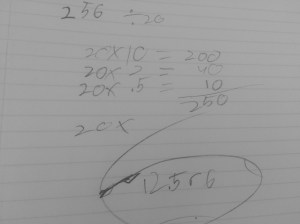 256 ÷20
20x10 = 200
20x 2 = 40
20x .5 = 10
250
20x
12.5r6